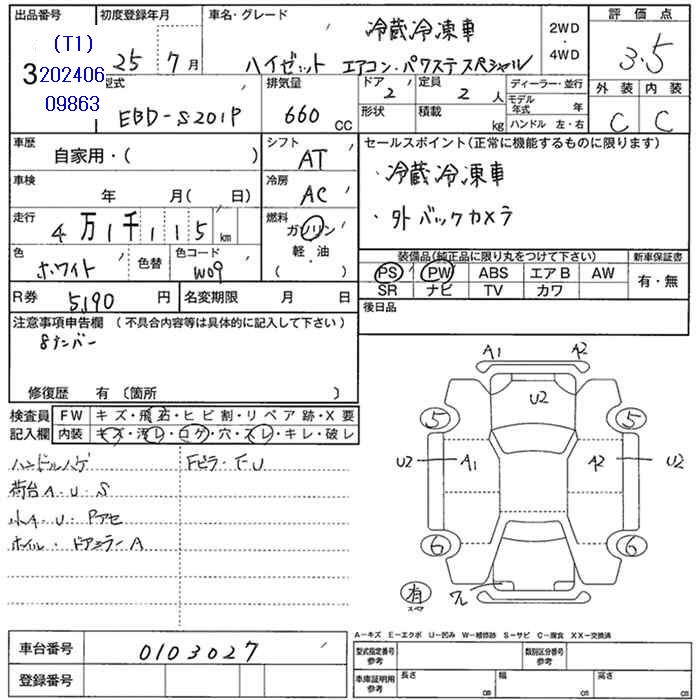 出品番号 初度登録年月 車名・グレード 冷蔵冷凍車 2WD ・ 4WD 評価点
3 (T1) 202406 09863 25年 7月 ハイゼット エアコン・パワステ スペシャル 3.5
型式 EBD-S201P 排気量 660 CC ドア 2 定員 2人 ディーラー・並行 外装 内装
形状 積載 kg モデル年式 年 ハンドル 左・右 C C
車歴 自家用・( ) シフト AT セールスポイント(正常に機能するものに限ります)
車検 年 月( 日) 冷房 AC ・冷蔵冷凍車
走行 4万1千115km 燃料 ガソリン 軽・油 ( ) ・外 バックカメラ
色 ホワイト 色替 色コード W09 装備品(純正品に限り丸をつけて下さい) 新車保証書
PS PW ABS エアB AW 有・無
R券 5,190円 名変期限 月 日 SR ナビ TV カワ
注意事項申告欄 (不具合内容等は具体的に記入して下さい) 後日品
8ナンバー
修復歴 有 〔箇所 〕
検査員 FW キズ・飛石・ヒビ割・リペア跡・X要
記入欄 内装 キズ・汚レ・コゲ・穴・スレ・キレ・破レ
ハンドルハゲ Fピラ・F U
荷台 A・U・S
小A・U・Pアセ
ホイル・ドアミラーA
A1 A2
U2
5 5
U2 A1 A2 U2
6 6
有 スペア ワレ
A−キズ E−エクボ U−凹み W−補修跡 S−サビ C−腐食 XX−交換済
車台番号 0103027 型式指定番号 参考 類別区分番号 参考
登録番号 車庫証明用 参考 長さ cm 幅 cm 高さ cm